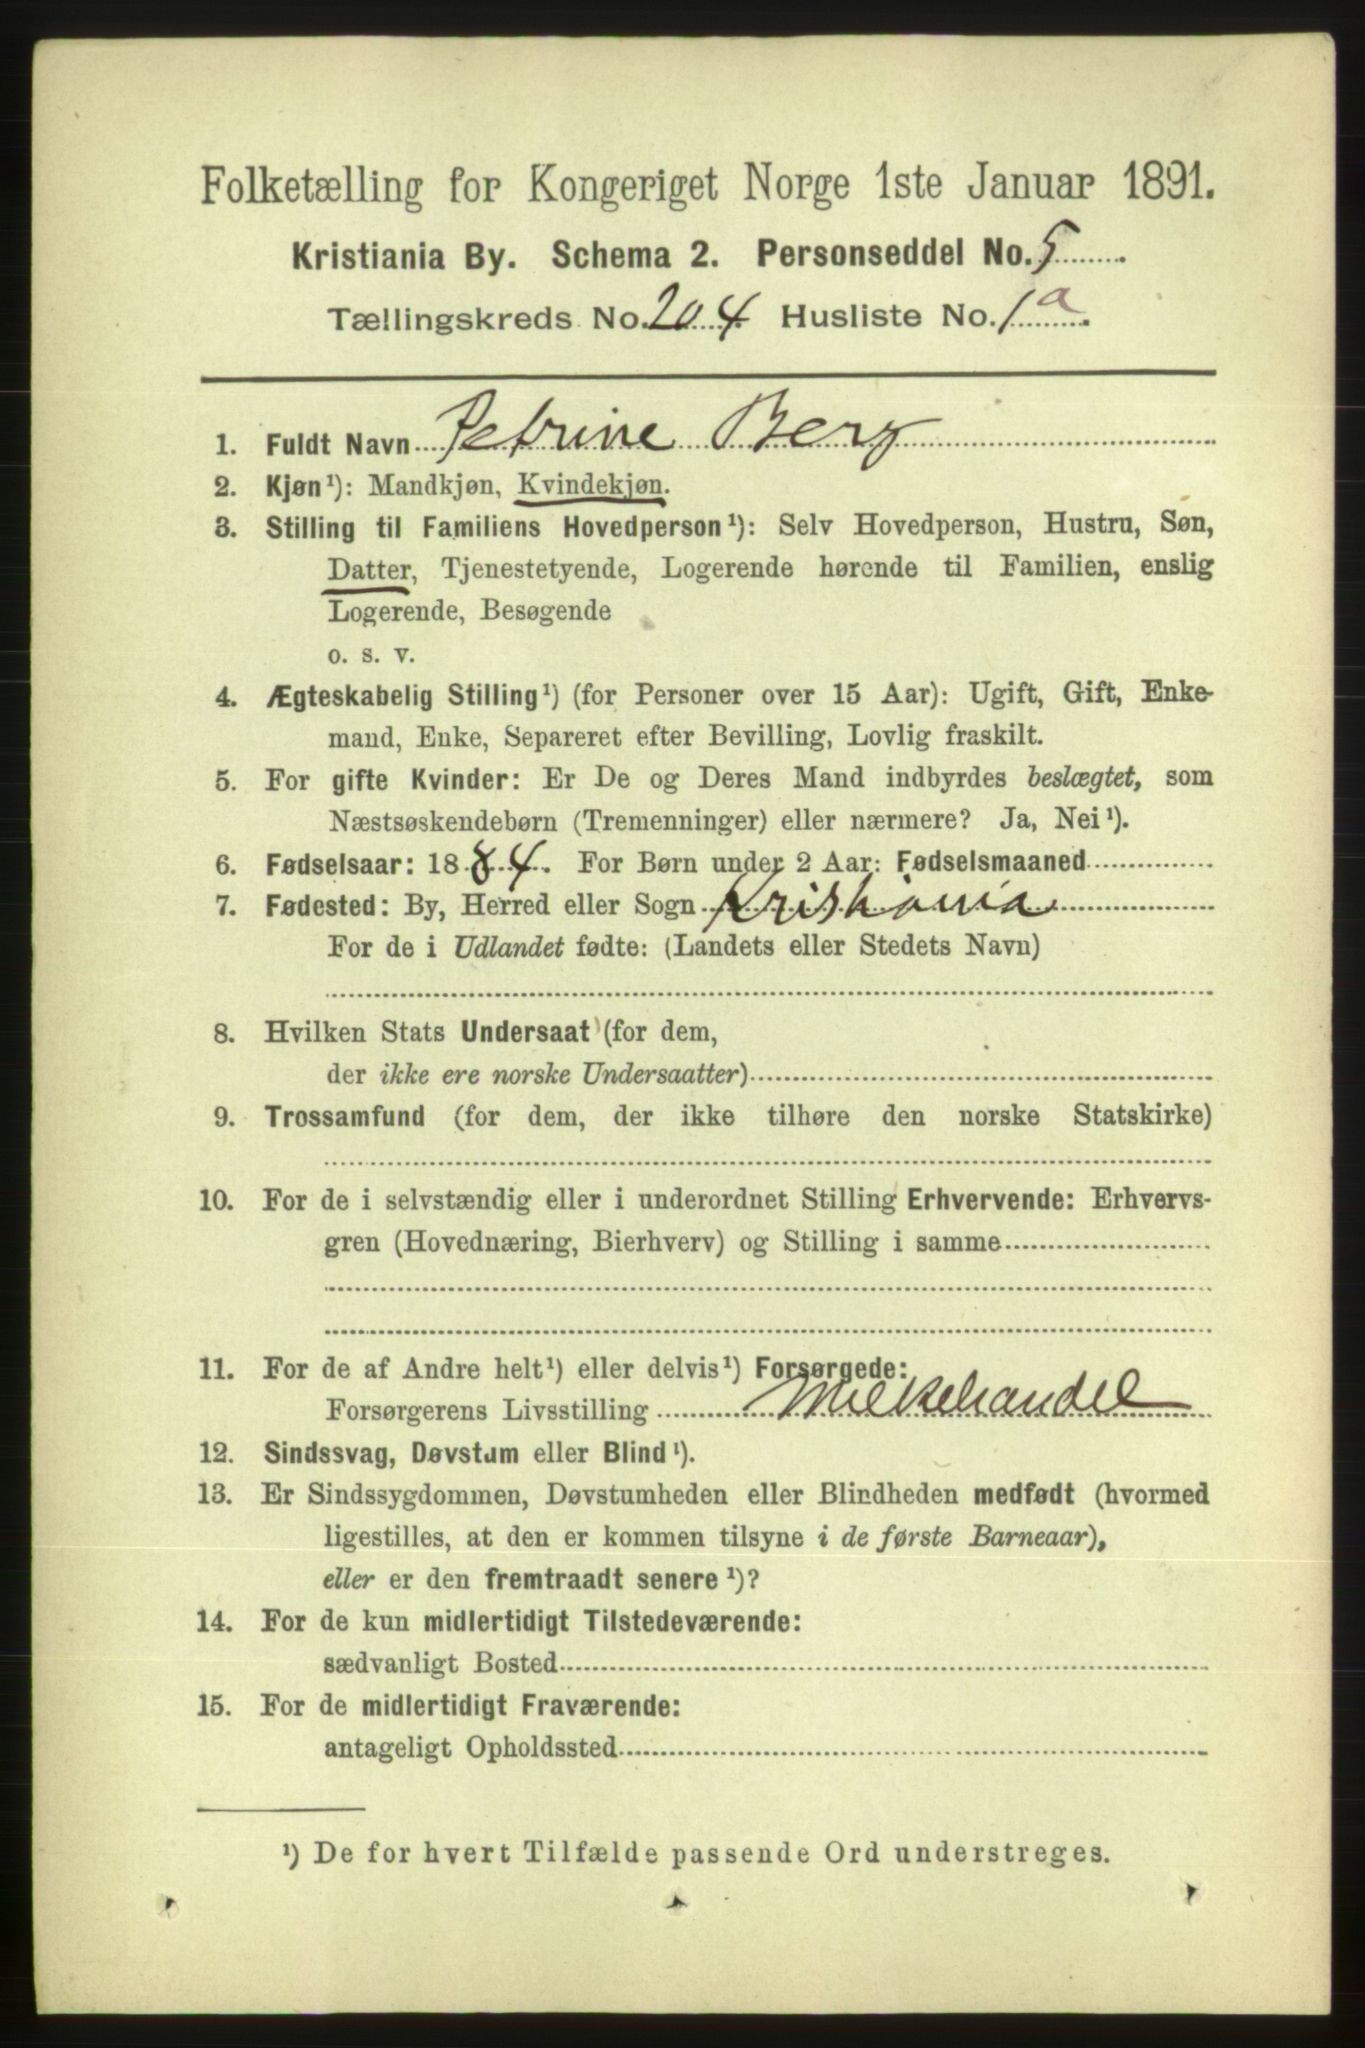 Folketælling for Kongeriget Norge 1ste Januar 1891.
Kristiania By. Schema 2. Personseddel No. 5
Tællingskreds No. 204. Husliste No. 1a.
1. Fuldt Navn Petrine Berg
2. Kjøn¹): Mandkjøn, Kvindekjøn.
3. Stilling til Familiens Hovedperson¹): Selv Hovedperson, Hustru, Søn,
Datter, Tjenestetyende, Logerende hørende til Familien, enslig
Logerende, Besøgende
o. s. v.
4. Ægteskabelig Stilling¹) (for Personer over 15 Aar): Ugift, Gift, Enke-
mand, Enke, Separeret efter Bevilling, Lovlig fraskilt.
5. For gifte Kvinder: Er De og Deres Mand indbyrdes beslægtet, som
Næstsøskendebørn (Tremenninger) eller nærmere? Ja, Nei¹).
6. Fødselsaar: 1884. For Børn under 2 Aar: Fødselsmaaned
7. Fødested: By, Herred eller Sogn Kristiania
For de i Udlandet fødte: (Landets eller Stedets Navn)
8. Hvilken Stats Undersaat (for dem,
der ikke ere norske Undersaatter)
9. Trossamfund (for dem, der ikke tilhøre den norske Statskirke)
10. For de i selvstændig eller i underordnet Stilling Erhvervende: Erhvervs-
gren (Hovednæring, Bierhverv) og Stilling i samme
11. For de af Andre helt¹) eller delvis¹) Forsørgede:
Forsørgerens Livsstilling Melkehandel
12. Sindssvag, Døvstum eller Blind¹).
13. Er Sindssygdommen, Døvstumheden eller Blindheden medfødt (hvormed
ligestilles, at den er kommen tilsyne i de første Barneaar),
eller er den fremtraadt senere¹)?
14. For de kun midlertidigt Tilstedeværende:
sædvanligt Bosted
15. For de midlertidigt Fraværende:
antageligt Opholdssted
¹) De for hvert Tilfælde passende Ord understreges.